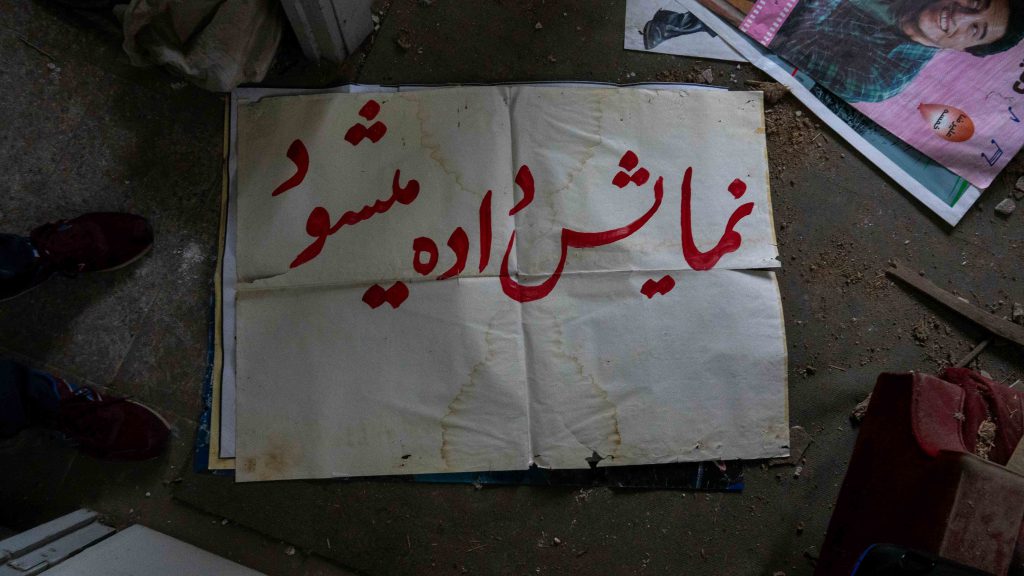 نمایش داده میشود